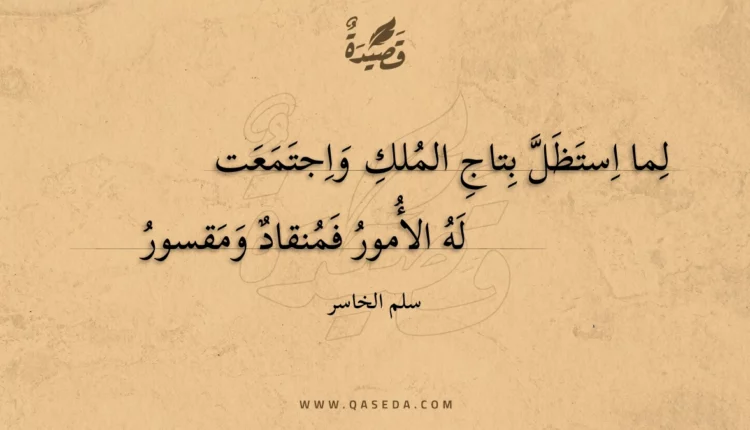 قَصِيْدَةٌ
لِما اِستَظَلَّ بِتاجِ المُلكِ وَاِجتَمَعَت
لَهُ الأُمورُ فَمُنقادٌ وَمَقسورُ
سلم الخاسر
WWW.QASEDA.COM